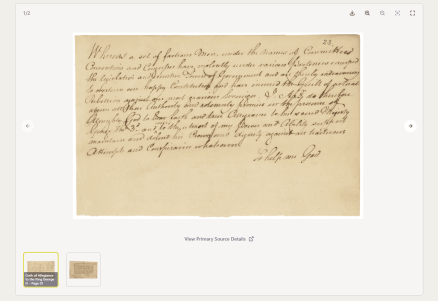 1/2
23.
Whereas a set of factious Men, under the Names of Committees
Conventions and Congresses have violently under various Pretences usurped
the Legislative and Powers of Government and are thereby endeavouring
to overturn our happy Constitution and have incurred the guilt of
Rebellion against our most gracious Sovereign I do therefore
their Authority and solemnly promise in the presence of
Almighty God to bear faith and true Allegiance to his
George the 3d. and to the utmost of my Power and Abilities support
maintain and defend his Crown and Dignity against all traiterous
Attempts and Conspiracies whatsoever
So help me God
View Primary Source Details
Oath of Allegiance
to the King George
III - Page